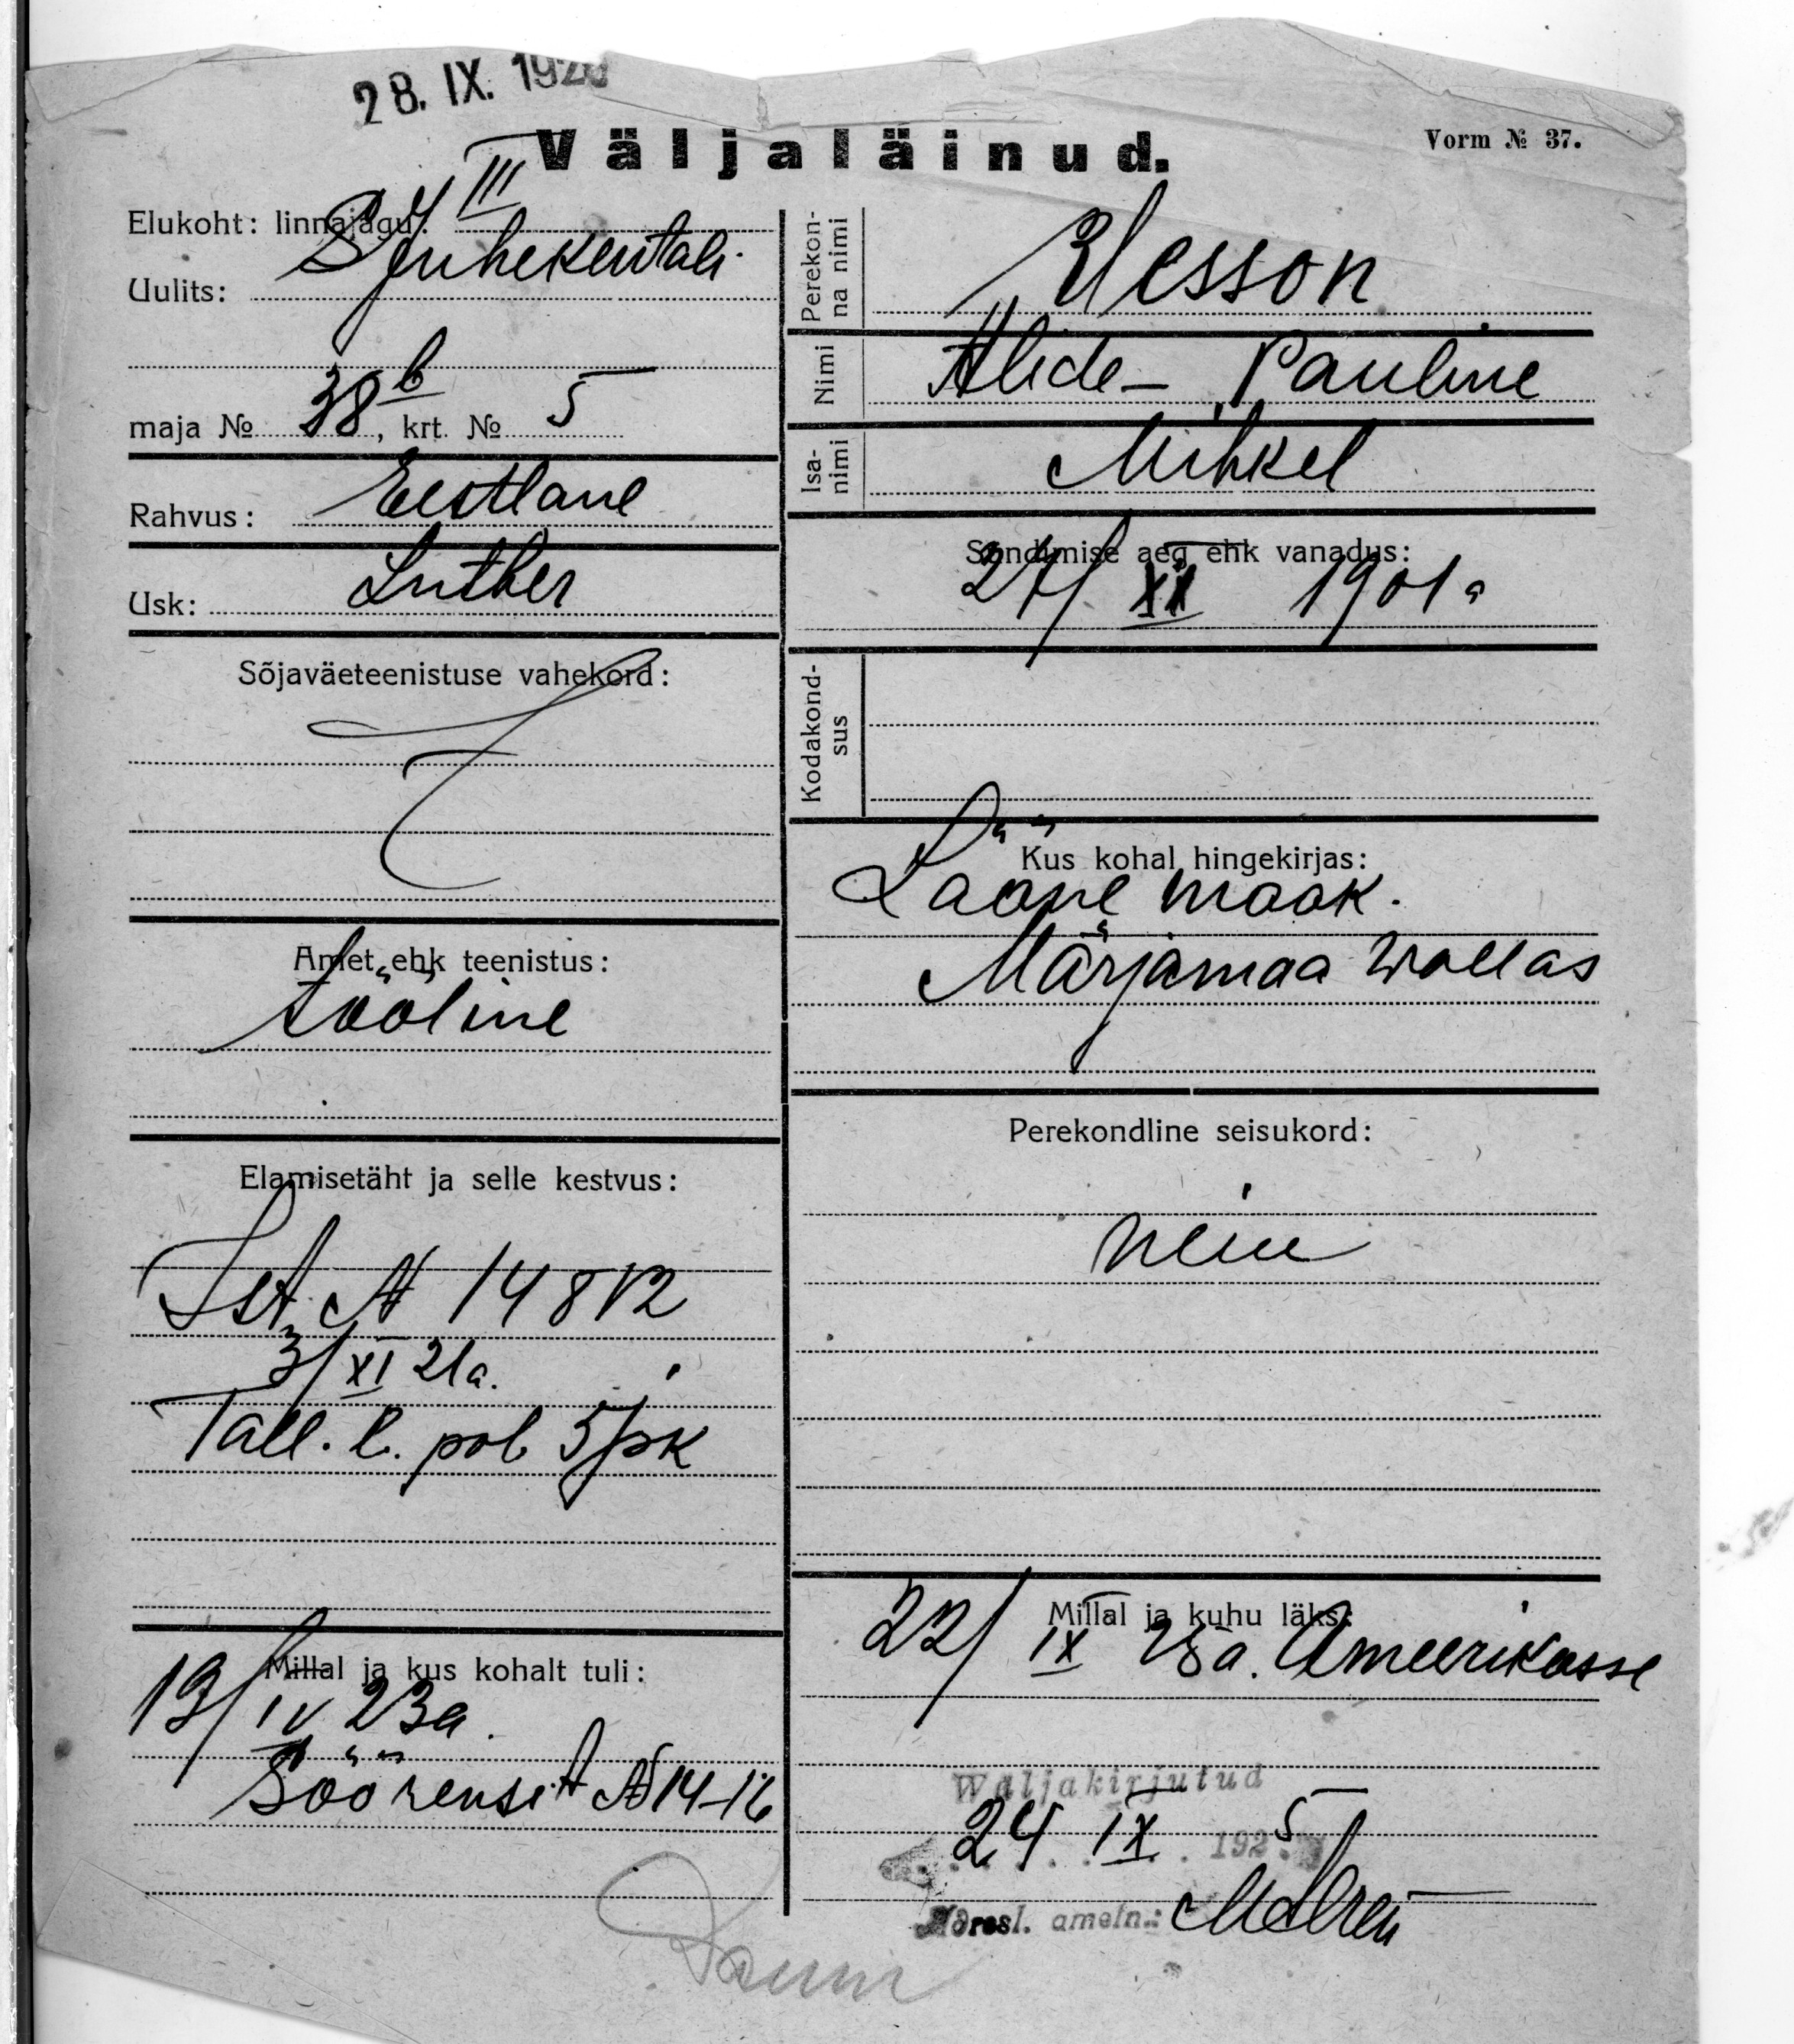 28. IX. 192
Väljaläinud.
Vorm № 37.
Elukoht: linnajagu: III
Uulits: Juhekentali
maja № 38 b, krt. № 5
Rahvus: Eestlane
Usk: Luther
Sõjaväeteenistuse vahekord:
Amet ehk teenistus:
tööline
Elamisetäht ja selle kestvus:
Ist. N 14812
3/XI 21a.
Tall. l. pol 5/jsk
Millal ja kus kohalt tuli:
13/IV 23a.
Söörensi t N 14-16
Perekonna nimi
Wesson
Nimi
Alide- Pauline
Isanimi
Mihkel
Sündimise aeg ehk vanadus:
27/XI 1901a
Kodakondsus
Kus kohal hingekirjas:
Lääne maak.
Märjamaa wallas
Perekondline seisukord:
neiu
Millal ja kuhu läks:
22/IX 25a. Ameerikasse
Wäljakirjutud
24 IX 1925
Adresl. ametn.: